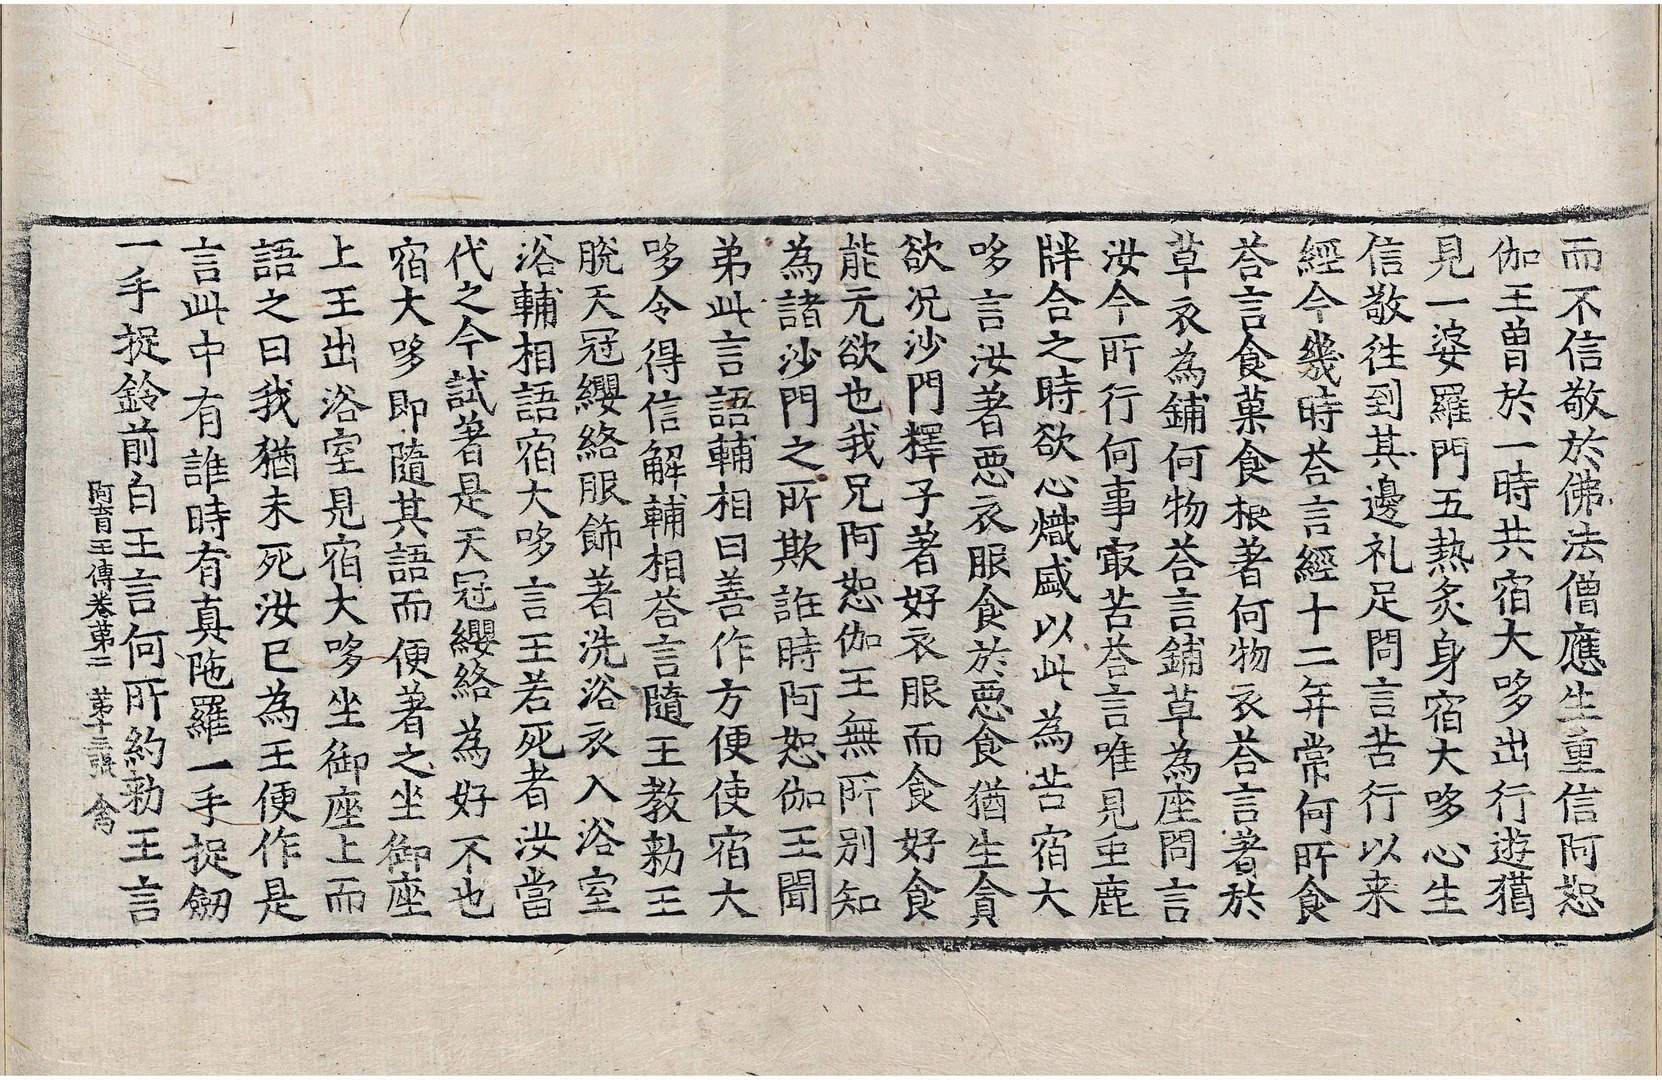 而不信敬於佛法僧應生重信阿恕
伽王曽於一時共宿大哆出行遊獦
見一婆羅門五熱炙身宿大哆心生
信敬往到其邊礼足問言苦行以来
經今幾時荅言經十二年常何所食
荅言食菓食根著何物衣荅言著於
草衣為鋪何物荅言鋪草為座問言
汝今所行何事冣苦荅言唯見䖝鹿
牉合之時欲心熾盛以此為苦宿大
哆言汝著惡衣服食於惡食猶生貪
欲况沙門釋子著好衣服而食好食
能元欲也我兄阿恕伽王無所別知
為諸沙門之所欺誑時阿恕伽王聞
弟此言語輔相曰善作方便使宿大
哆令得信解輔相荅言隨王教勑王
脫天冠纓絡服飾著洗浴衣入浴室
浴輔相語宿大哆言王若死者汝當
代之今試著是天冠纓絡為好不也
宿大哆即隨其語而便著之坐御座
上王出浴室見宿大哆坐御座上而
語之曰我猶未死汝已為王便作是
言此中有誰時有真陁羅一手捉劒
一手捉鈴前白王言何所約勑王言
阿育王傳卷第二 第十三張 禽